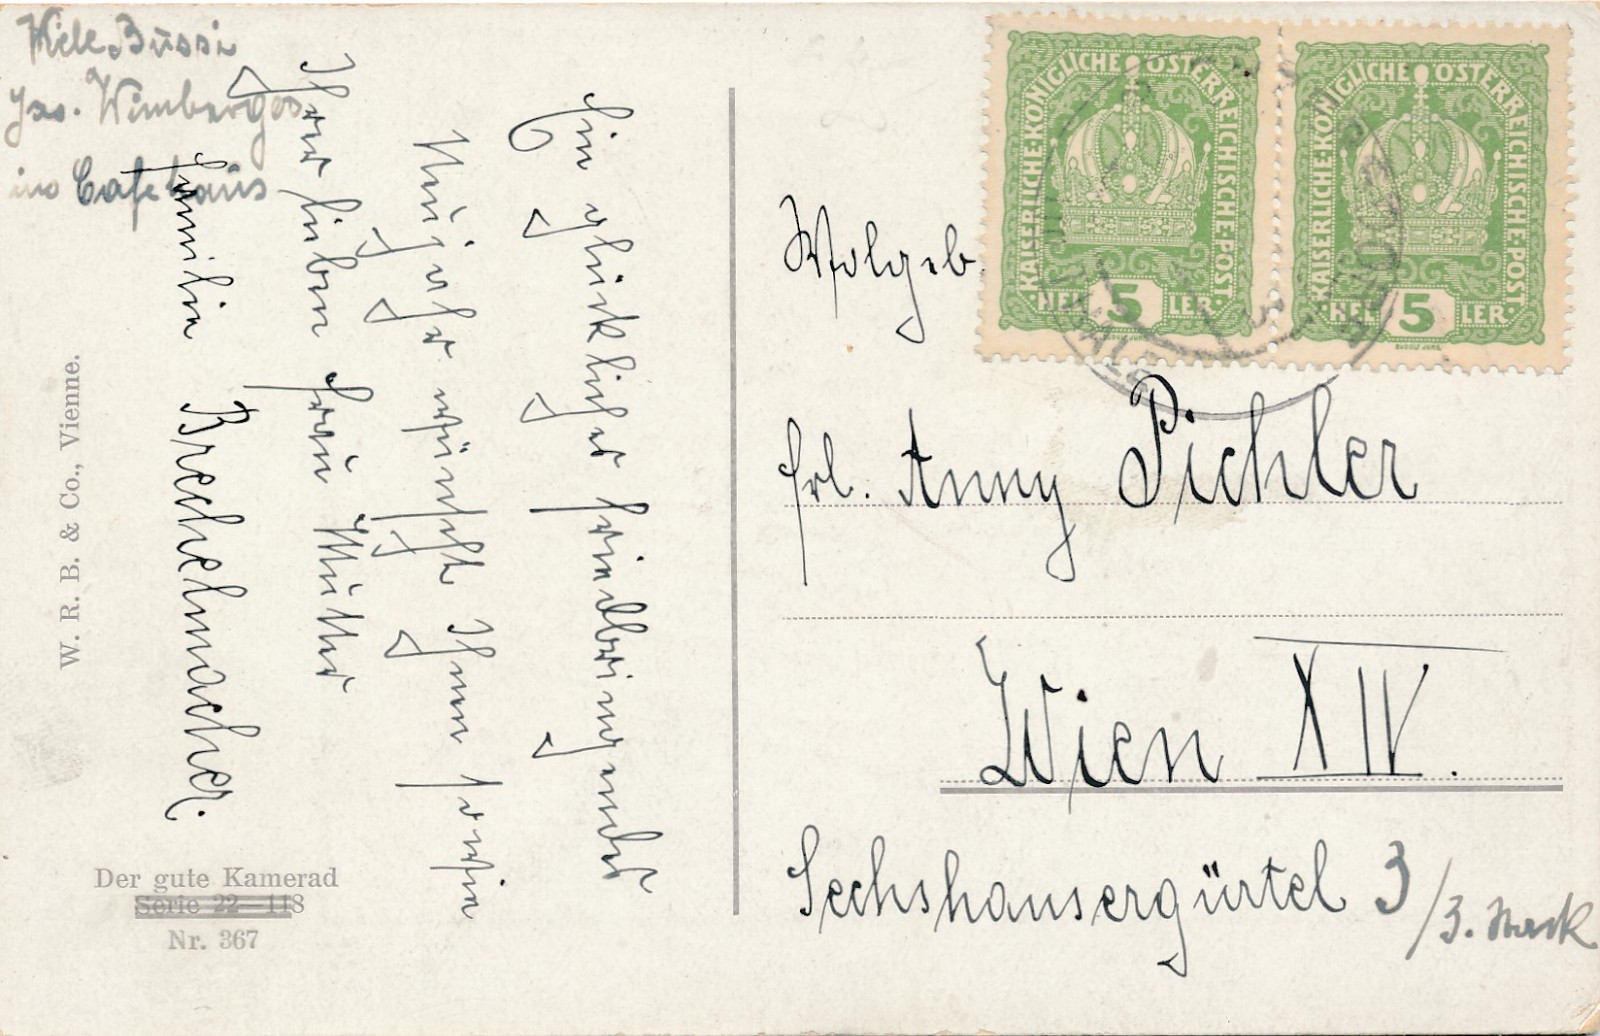 Viele Bussi
Jos. Wimberger
ins Cafehaus
Ein glückliches friedbringendes
Neujahr wünscht Ihnen sowie
Ihrer lieben Frau Mutter
Familie Brechelmacher.
W. R. B. & Co., Vienne.
Der gute Kamerad
Serie 22—118
Nr. 367
KAISERLICHE KÖNIGLICHE ÖSTERREICHISCHE POST
HEL 5 LER
RUDOLF JUNK
KAISERLICHE KÖNIGLICHE ÖSTERREICHISCHE POST
HEL 5 LER
RUDOLF JUNK
Wolgeb.
Frl. Anny Pichler
Wien XIV.
Sechshausergürtel 3/3. Stock